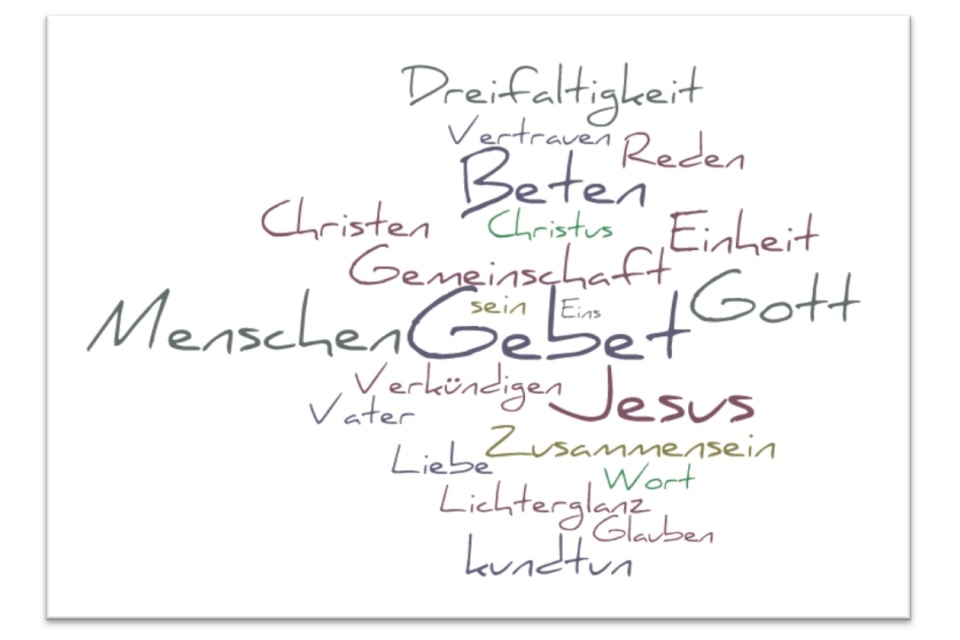 Dreifaltigkeit
Vertrauen Reden
Beten
Christen Christus Einheit
Gemeinschaft
sein Eins
Menschen Gebet Gott
Verkündigen
Vater Jesus
Zusammensein
Liebe Wort
Lichterglanz
Glauben
kundtun